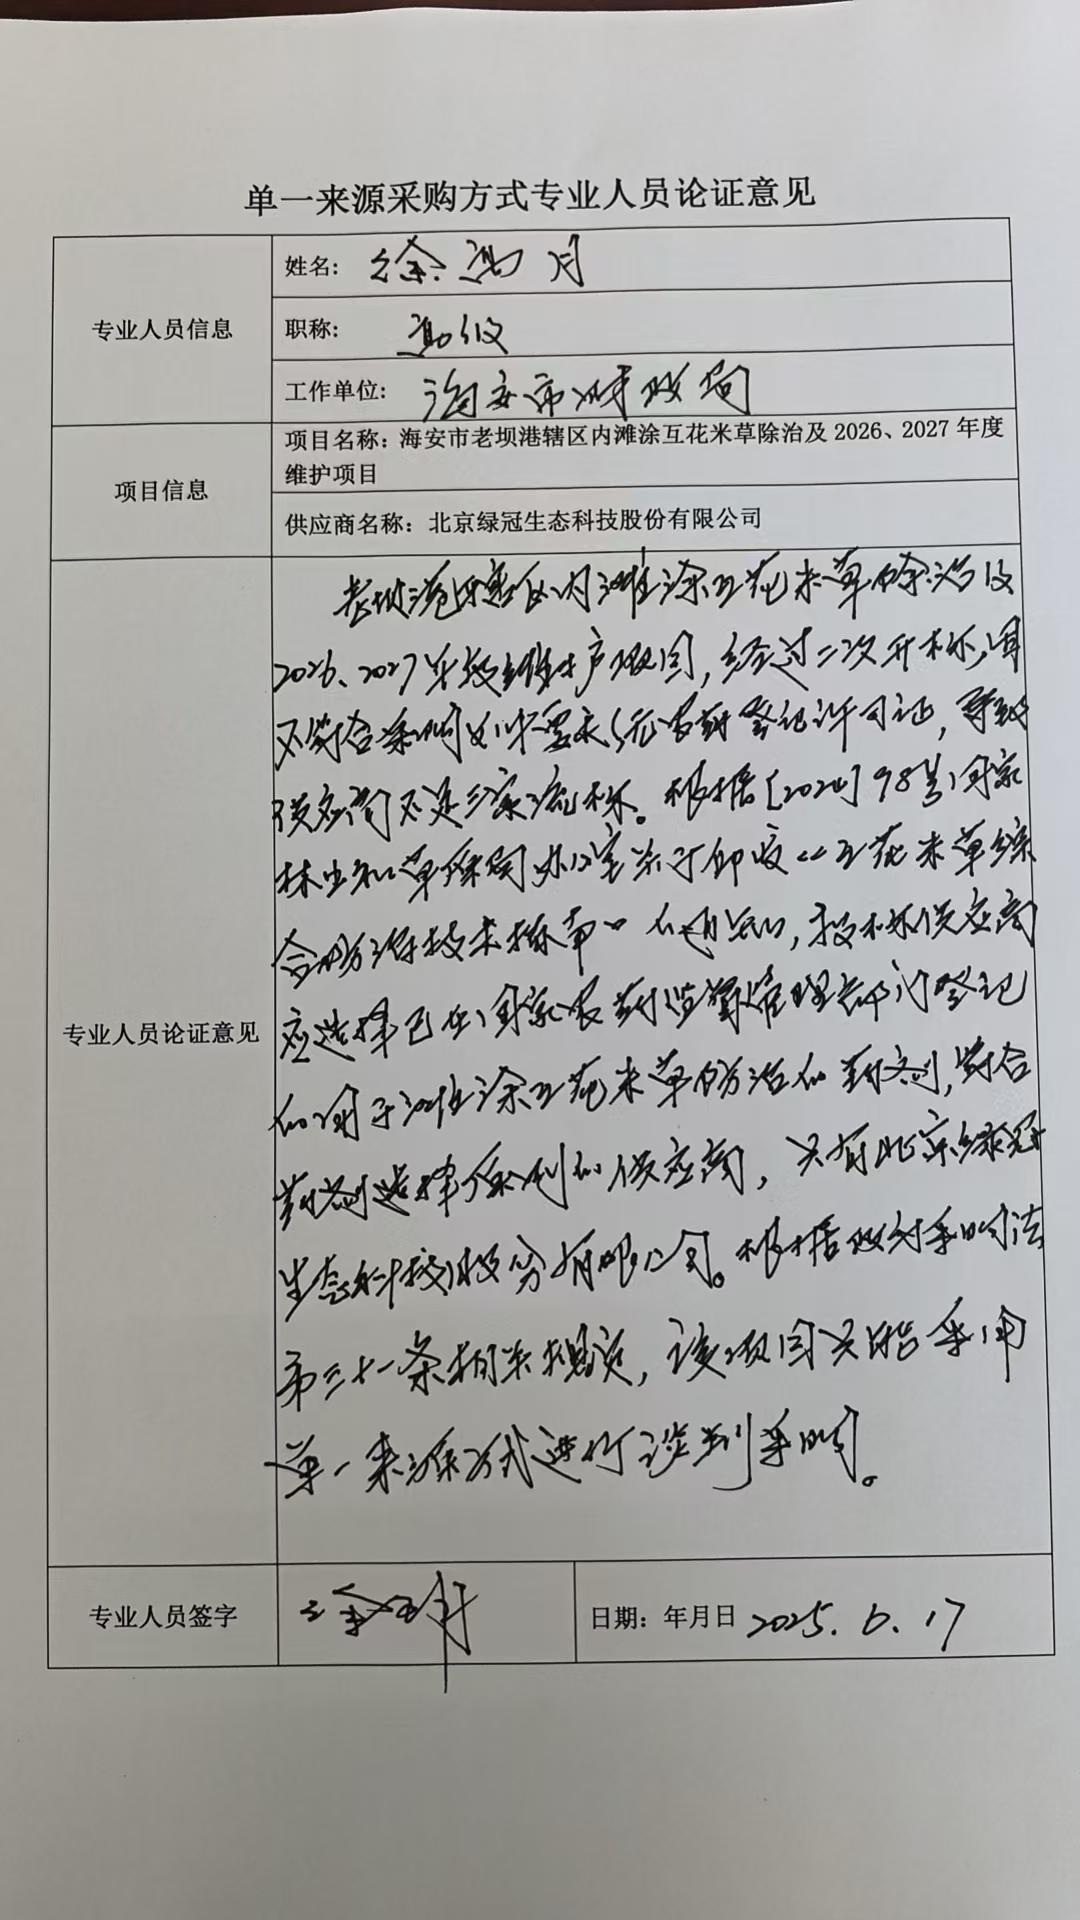 单一来源采购方式专业人员论证意见
专业人员信息
姓名: 徐 月
职称: 高级
工作单位: 海安市财政局
项目信息
项目名称: 海安市老坝港辖区内滩涂互花米草除治及 2026、2027 年度
维护项目
供应商名称: 北京绿冠生态科技股份有限公司
专业人员论证意见
老坝港辖区内滩涂互花米草除治及
2026、2027年度维护项目,经过二次开标,因
不符合采购文件要求(无农药登记许可证,导致
供应商不足三家流标。根据[2024]98号国家
林业和草原局办公室关于印发《互花米草综
合防治技术指南》的通知,投标供应商
应选择已在国家农药监督管理部门登记
的用于滩涂互花米草防治的药剂,符合
药剂选择原则的供应商,只有北京绿冠
生态科技股份有限公司。根据政府采购法
第三十一条相关规定,该项目只能采用
单一来源方式进行谈判采购。
专业人员签字
日期: 年月日 2025.6.17